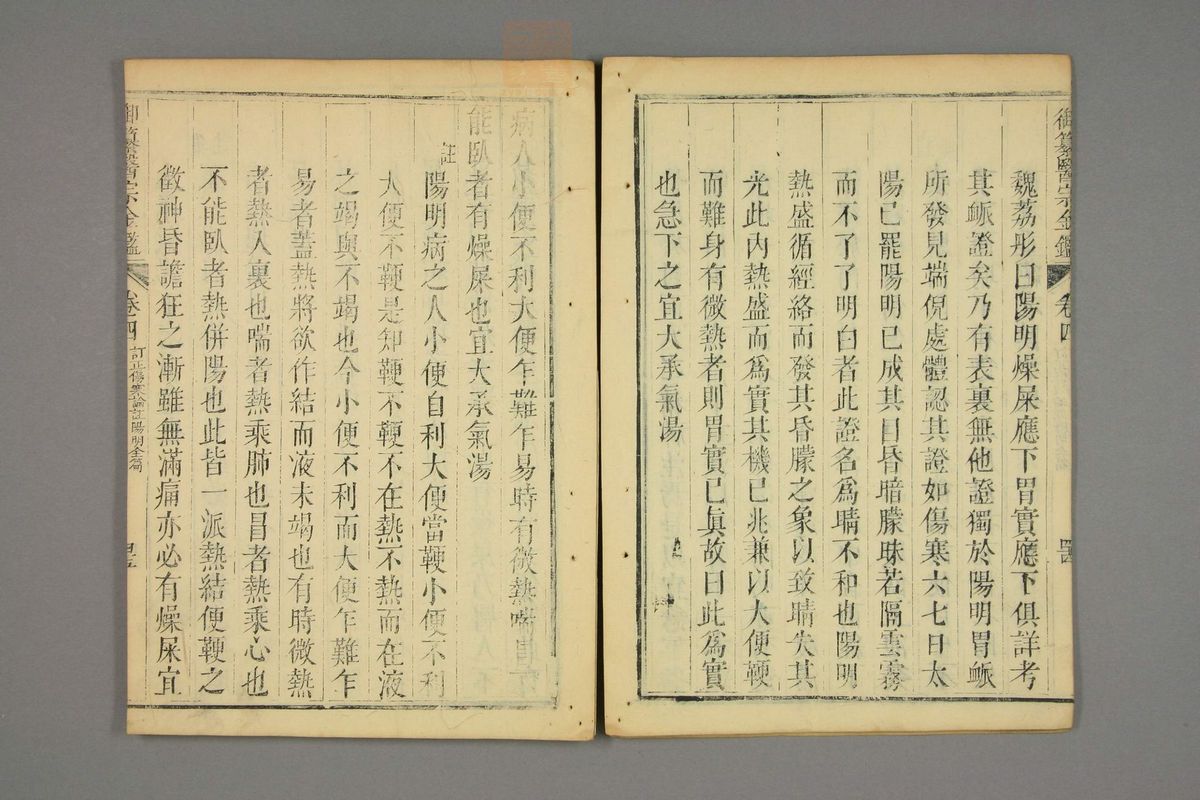 御纂醫宗金鑑 卷四 四
魏荔彤曰陽明燥屎應下胃實應下俱詳考
其脈證矣乃有表裏無他證獨於陽明胃脈
所發見端倪處體認其證如傷寒六七日太
陽已罷陽明已成其目昏暗朦昧若隔雲霧
而不了了明白者此證名爲睛不和也陽明
熱盛循經絡而發其昏朦之象以致睛失其
光此内熱盛而爲實其機已兆兼以大便鞕
而難身有微熱者則胃實已眞故曰此爲實
也急下之宜大承氣湯
病人小便不利大便乍難乍易時有微熱喘冒不
能臥者有燥屎也宜大承氣湯
註
陽明病之人小便自利大便當鞕小便不利
大便不鞕是知鞕不鞕不在熱不熱而在液
之竭與不竭也今小便不利而大便乍難乍
易者蓋熱將欲作結而液未竭也有時微熱
者熱入裏也喘者熱乘肺也冒者熱乘心也
不能臥者熱併陽也此皆一派熱結便鞕之
徵神昏譫狂之漸雖無滿痛亦必有燥屎宜
御纂醫宗金鑑 卷四 訂正傷寒論註陽明全篇